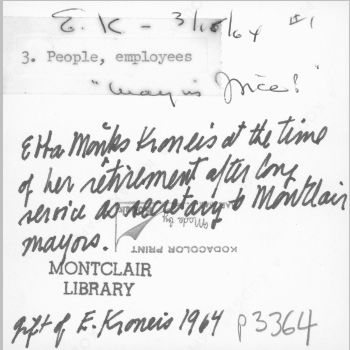 E. K - 3/15/64 #1
3. People, employees
"
Etta Monks Kroneis at the time
of her retirement after long
service as secretary to Montclair
mayors.
Made by
KODACOLOR PRINT
MONTCLAIR
LIBRARY
gift of E. Kroneis 1964 p3364